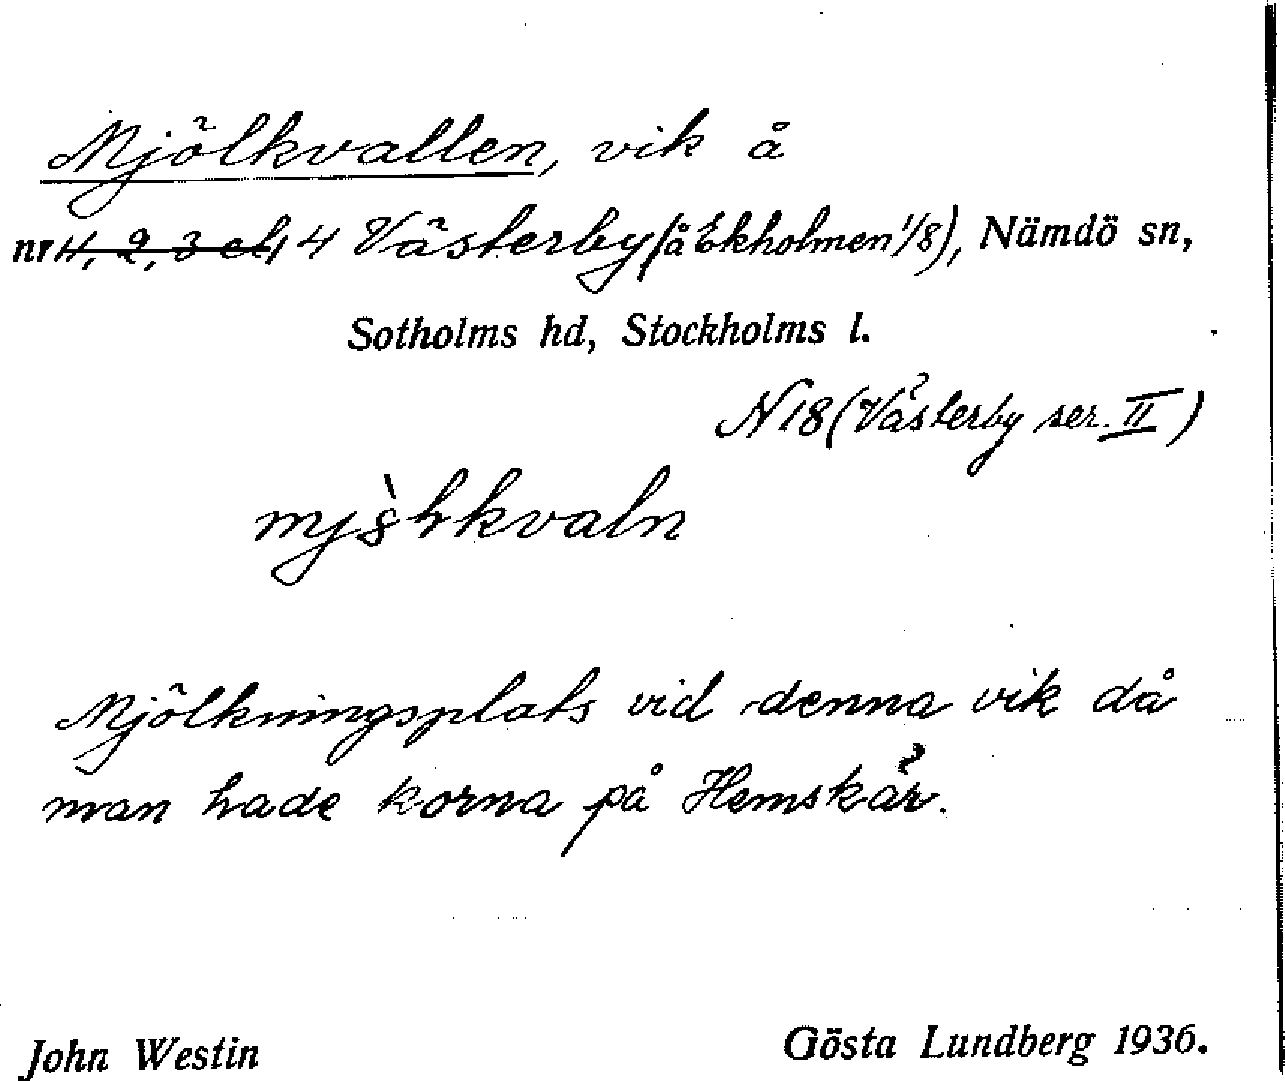 Mjölkvallen, vik å
nr 4 Västerby (å Ekholmen 1/8), Nämdö sn,
Sotholms hd, Stockholms l.
N 18 (Västerby ser. II)
Mjölkningsplats vid denna vik då
man hade korna på Hemskär.
John Westin
Gösta Lundberg 1936.